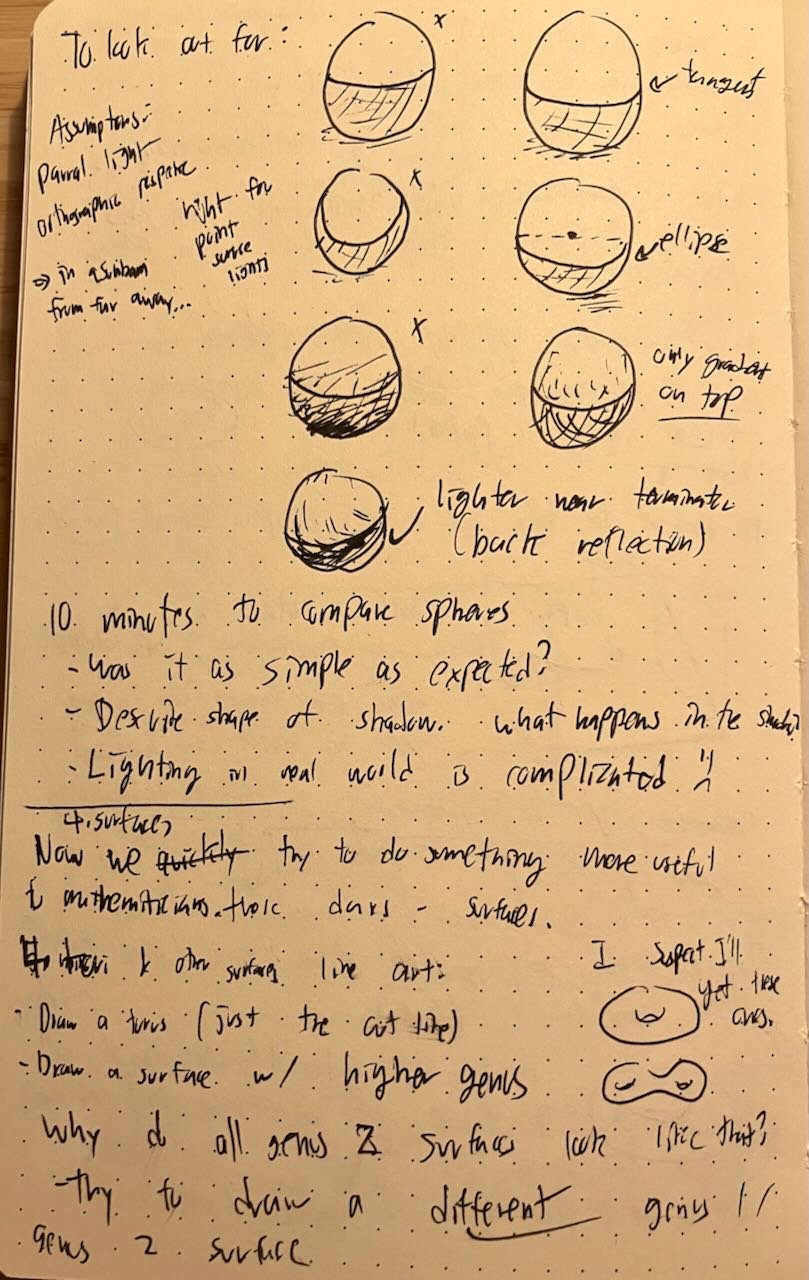 To look out for:
x
x
x
tangent
Assumptions:
light
orthographic
right for
point
source
lights
ellipse
=> in
from far away...
only gradient
on top
lighter near terminator
(back reflection)
10 minutes to compare spheres
- Was it as simple as expected?
- Describe shape of shadow. What happens in the
- Lighting in real world is complicated
4. surfaces
Now we quickly try to do something more useful
to mathematicians these days - surfaces.
other surfaces line art:
I suspect I'll
get these
ones.
- Draw a torus (just the out line)
- Draw a surface w/ higher genus
Why do all genus 2 surfaces look like that?
- Try to draw a different genus 1/
genus 2 surface